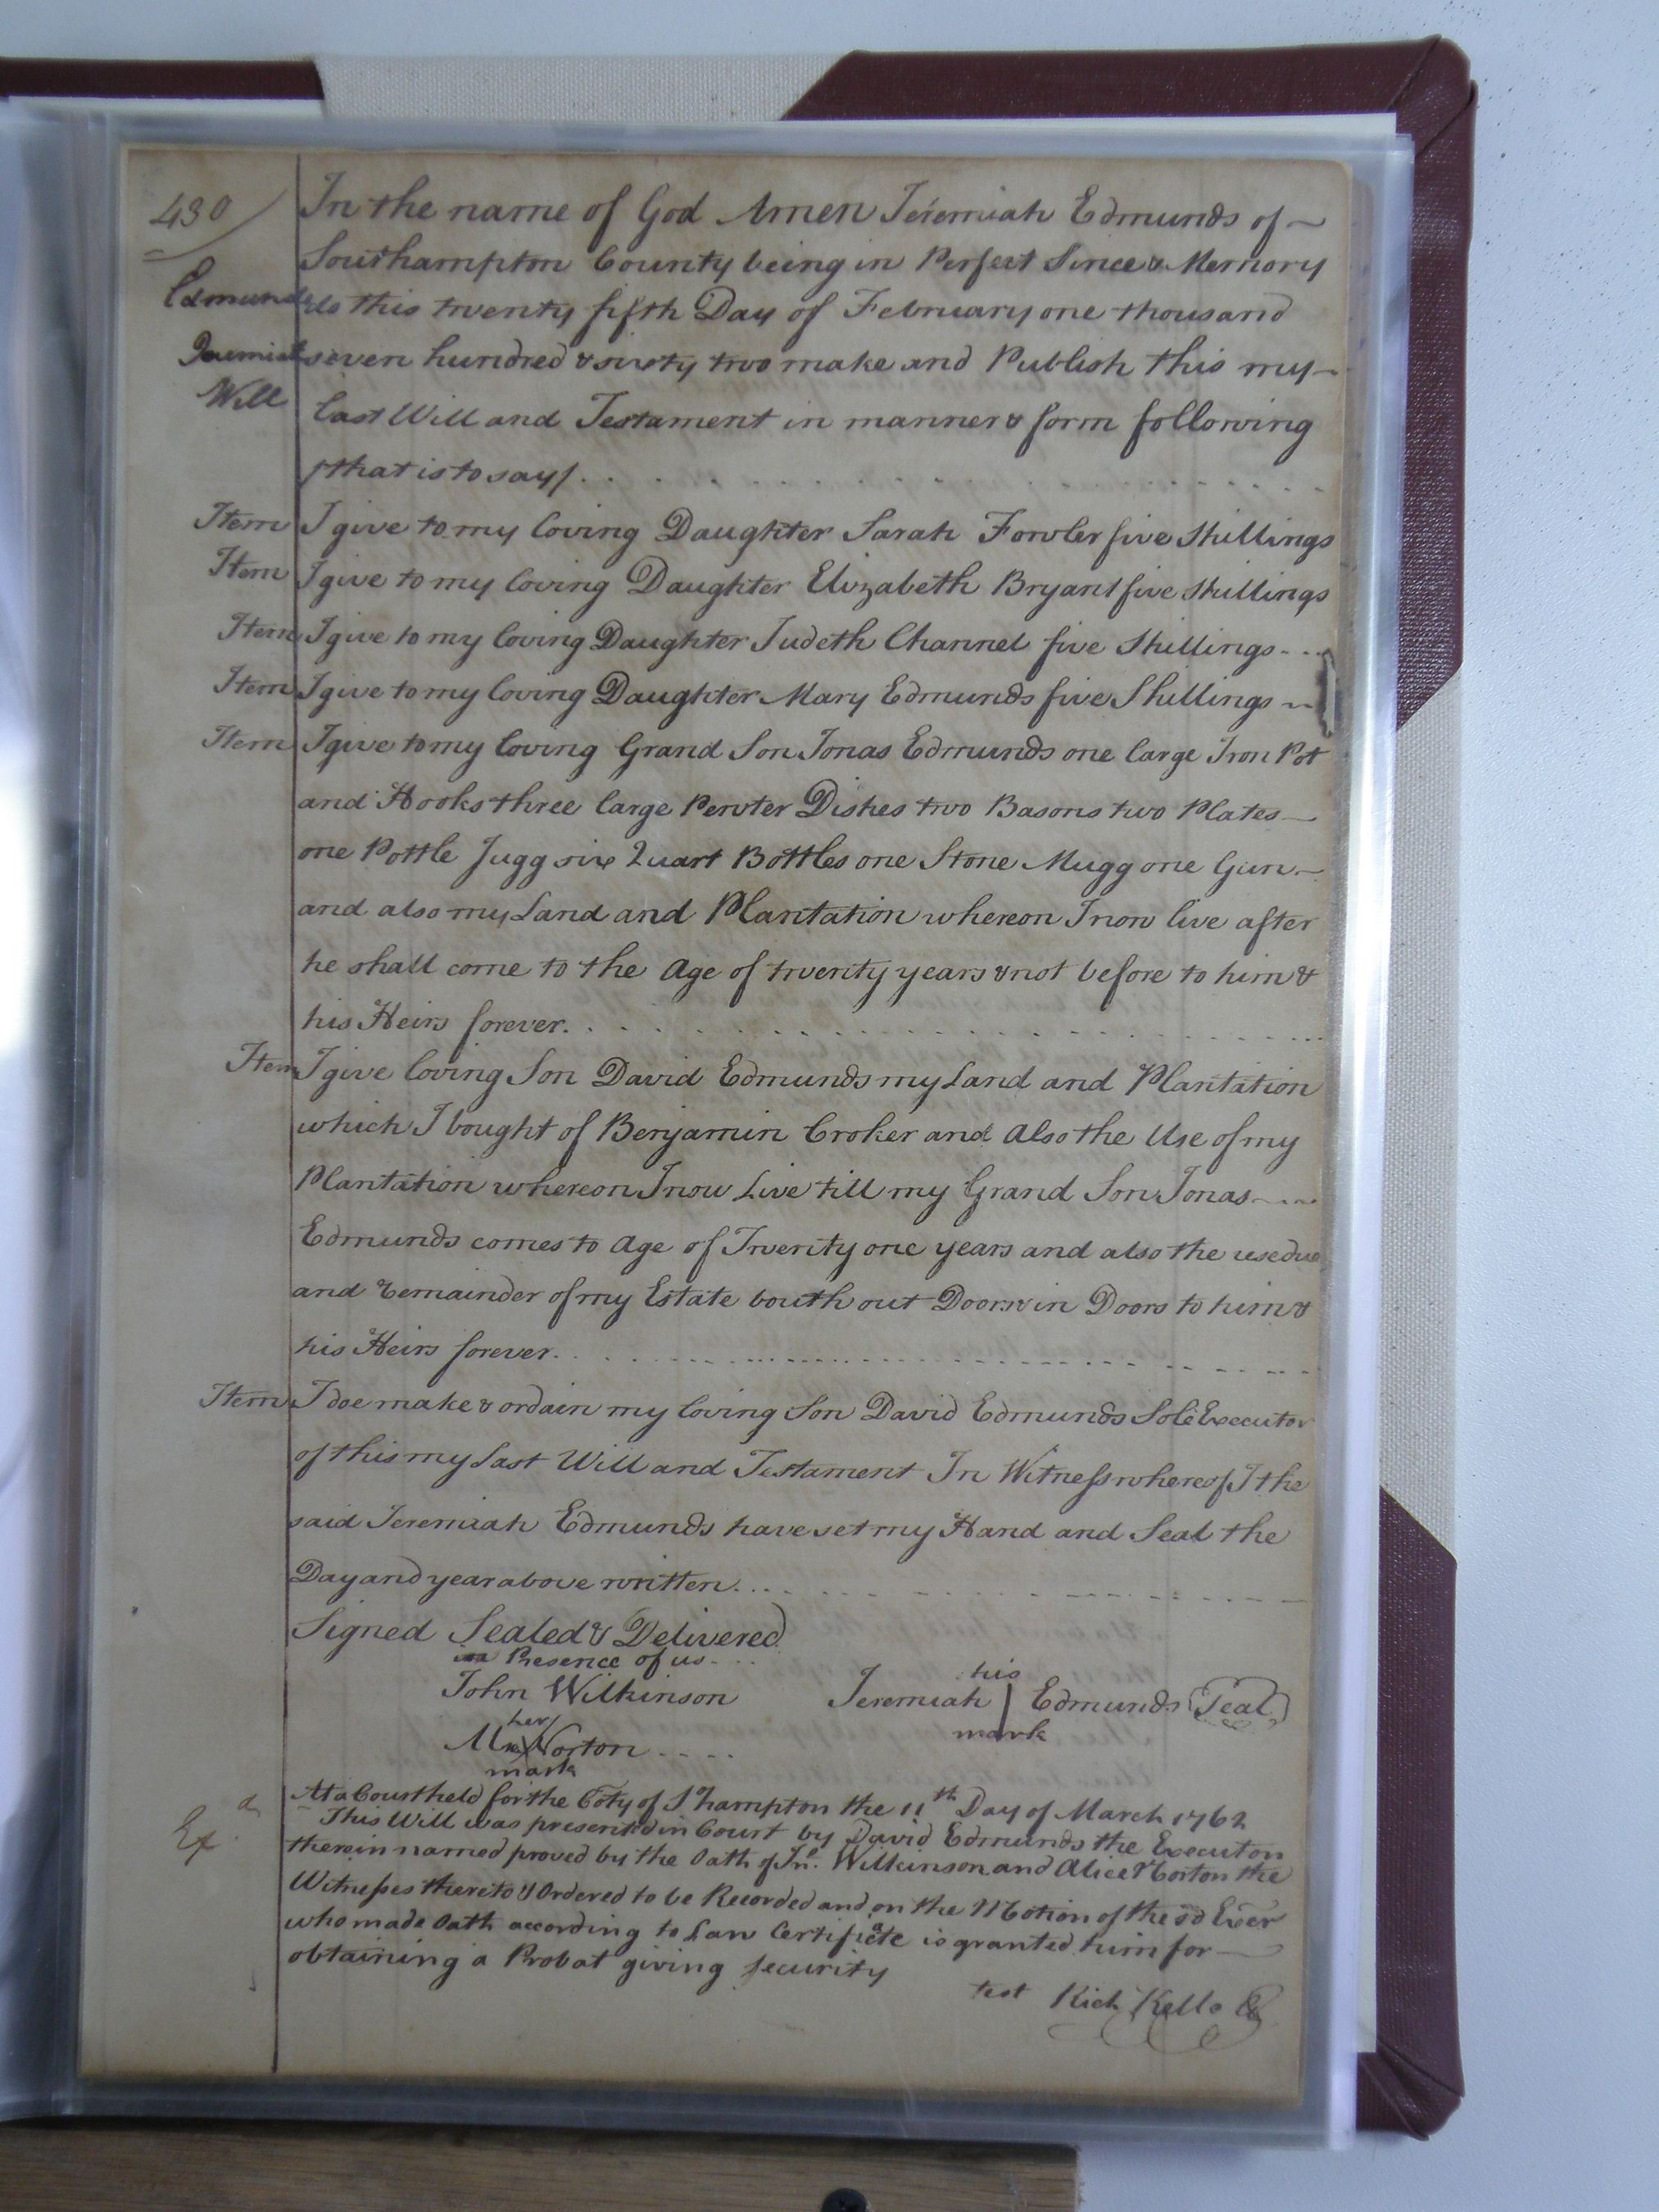 430
In the name of God Amen Jeremiah Edmunds of
Edmunds
Southampton County being in Perfect Since & Memory
do this twenty fifth Day of February one thousand
Jeremiah
seven hundred & sixty two make and Publish this my
Will
last Will and Testament in manner & form following
/that is to say/
Item I give to my loving Daughter Sarah Fowler five Shillings
Item I give to my loving Daughter Elizabeth Bryant five Shillings
Item I give to my loving Daughter Judeth Channel five Shillings
Item I give to my loving Daughter Mary Edmunds five Shillings
Item I give to my loving Grand Son Jonas Edmunds one large Iron Pot
and Hooks three large Pewter Dishes two Basons two Plates
one Pottle Jugg six Quart Bottles one Stone Mugg one Gun
and also my Land and Plantation whereon I now live after
he shall come to the Age of twenty years & not before to him &
his Heirs forever
Item I give loving Son David Edmunds my Land and Plantation
which I bought of Benjamin Croker and Also the Use of my
Plantation whereon I now Live till my Grand Son Jonas
Edmunds comes to Age of Twenty one years and also the resedue
and remainder of my Estate bouth out Doors & in Doors to him &
his Heirs forever
Item I doe make & ordain my loving Son David Edmunds Sole Executor
of this my Last Will and Testament In Witness whereof I the
said Jeremiah Edmunds have set my Hand and Seal the
Day and year above written
Signed Sealed & Delivered
in Presence of us
his
John Wilkinson Jeremiah Edmunds Seal
mark
her
Norton
mark
At a Court held for the Coty of S'hampton the 11th Day of March 1762
This Will was presented in Court by David Edmunds the Executor
Exd
therein named proved by the Oath of Jno. Wilkinson and Alice Norton the
Witnesses thereto & Ordered to be Recorded and on the Motion of the sd Exer
who made Oath according to Law Certificate is granted him for
obtaining a Probat giving security
test Rich Kello